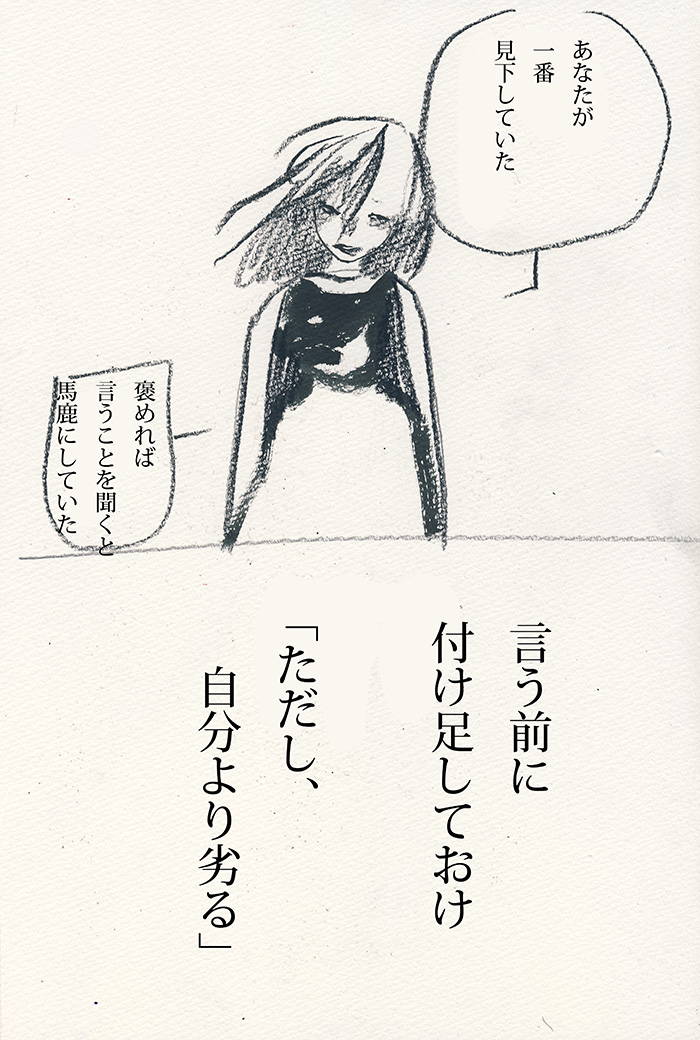 あなたが
一番
見下していた
褒めれば
言うことを聞くと
馬鹿にしていた
言う前に
付け足しておけ
「ただし、
自分より劣る」